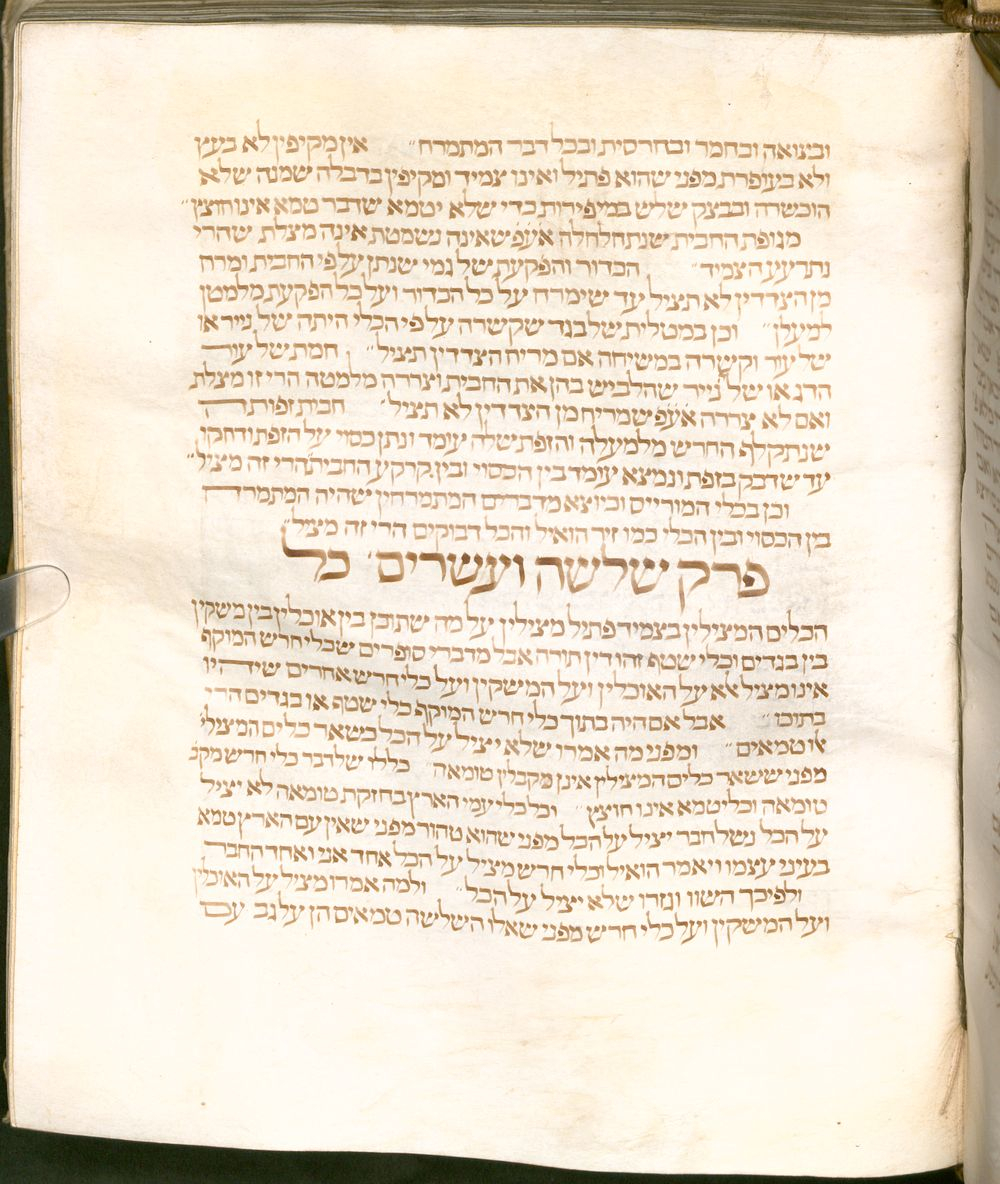 ובצואה ובחמר ובחרסית ובכל דבר המתמרח״ אין מקיפין לא בעץ
ולא בעופרת מפני שהוא פתיל ואינו צמיד ומקיפין בדבלה שמנה שלא
הוכשרה ובבצק שלש במי פירות כדי שלא יטמא שדבר טמא אינו חוצץ״
מגופת החבית שנתחלחלה אע״פ שאינה נשמטת אינה מצלת שהרי
נתרעע הצמיד״ הכדור והפקעת של גמי שנתנן על פי החבית ומרח
מן הצדדין לא תציל עד שימרח על כל הכדור ועל כל הפקעת מלמטן
למעלן״ וכן במטלית של בגד שקשרה על פי הכלי היתה של נייר או
של עור וקשרה במשיחה אם מריח הצדדין תציל״ חמת של עור
הדג או של נייר שהלביש בהן את החבית וצררה מלמטה הרי זו מצלת
ואם לא צררה אע״פ שמריח מן הצדדין לא תציל״ חבית זפותה
שנתקלף החרש מלמעלה והזפת שלה עומד ונתן כסוי על הזפת ודחקו
עד שדבק בזפת ונמצא עומד בין הכסוי ובין קרקע החבית הרי זה מציל״
וכן בכלי המורייס וכיוצא מדברים המתמרחין שהיה המתמרח
בין הכסוי ובין הכלי כמו זיר הואיל והכל דבוקים הרי זה מציל״
פרק שלשה ועשרים׳ כל
הכלים המצילין בצמיד פתיל מצילין על מה שתוכן בין אוכלין בין משקין
בין בגדים וכלי שטף זהו דין תורה אבל מדברי סופרים שכלי חרש המוקף
אינו מציל אלא על האוכלין ועל המשקין ועל כלי חרש אחרים שיהיו
בתוכו״ אבל אם היה בתוך כלי חרש המוקף כלי שטף או בגדים הרי
אלו טמאים״ ומפני מה אמרו שלא יציל על הכל כשאר כלים המצילי׳
מפני ששאר כלים המצילין אינן מקבלין טומאה״ כללו של דבר כלי חרש מקב׳
טומאה וכלי טמא אינו חוצץ״ וכל כלי עמי הארץ בחזקת טומאה לא יציל
על הכל נשל חבר יציל על הכל מפני שהוא טהור מפני שאין עם הארץ טמא
בעיני עצמו ויאמר הואיל וכלי חרש מציל על הכל אחד אני ואחד החבר
ולפיכך השוו וגזרו שלא יציל על הכל״ ולמה אמרו מציל על האוכלין
ועל המשקין ועל כלי חרש מפני שאלו השלשה טמאים הן על גב עם